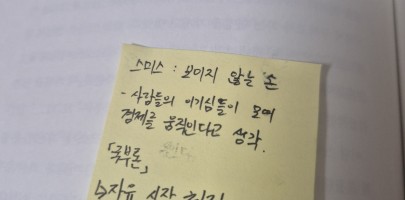 스미스 : 보이지 않는 손
- 사람들의 이기심들이 모여
경제를 움직인다고 생각.
「국부론」
↳자유 시장